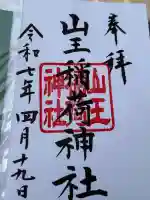 奉拝
山王稲荷神社
山王
神社
令和七年四月十九日